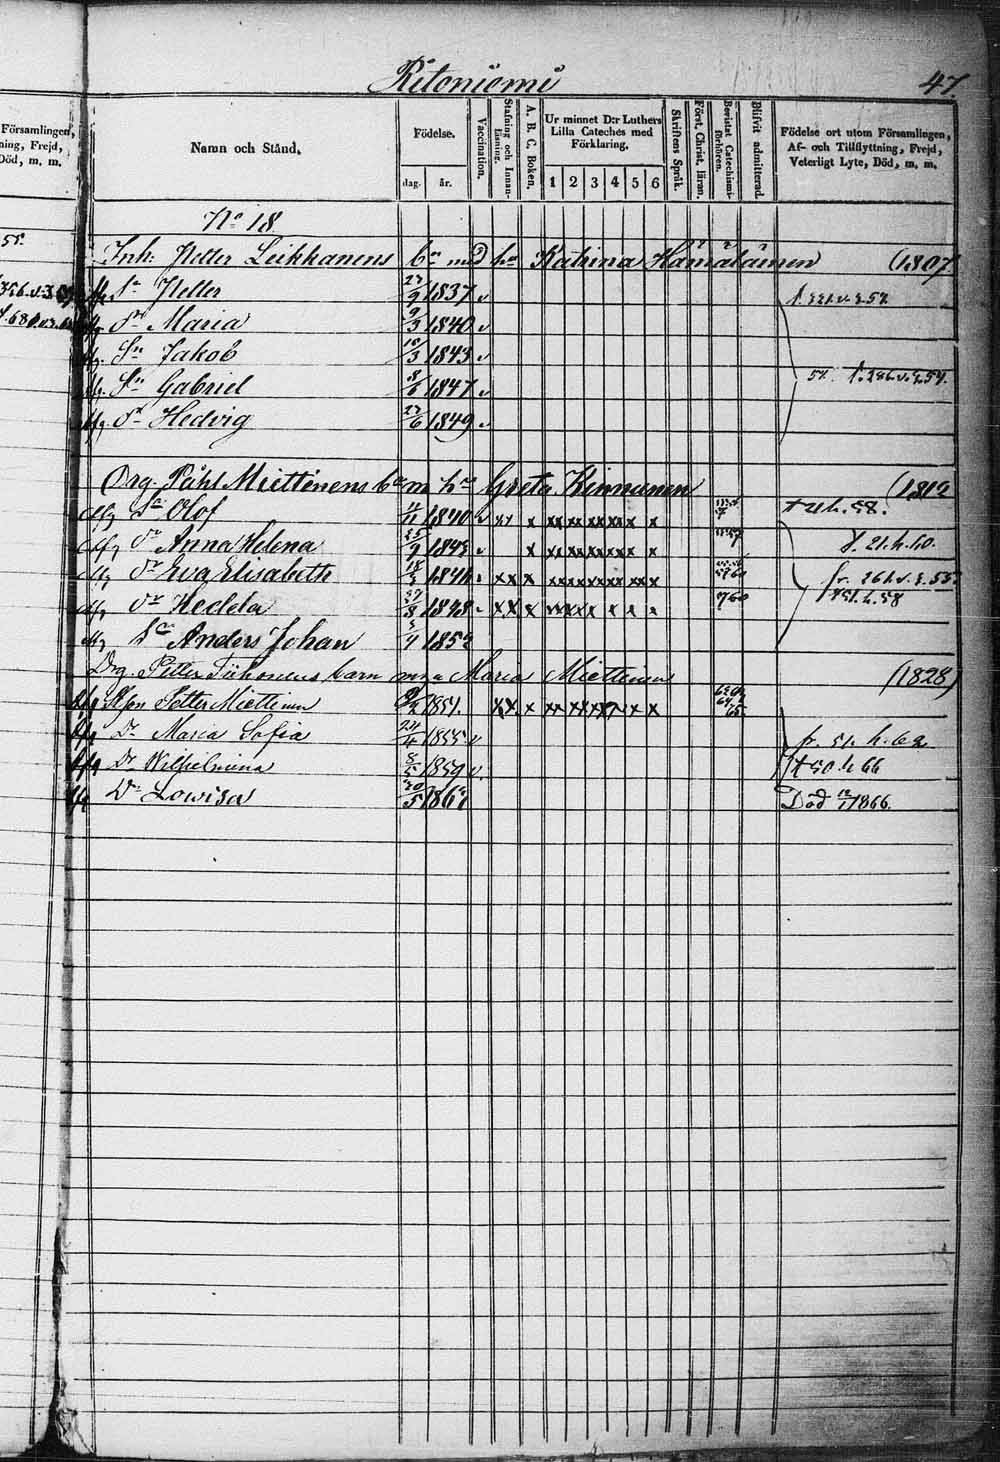 Ritoniemi
47.
Församlingen,
ning, Frejd,
Död, m. m.
Namn och Stånd,
Födelse.
dag. år.
Vaccination.
Stafning och Innan-läsning.
A. B. C. Boken.
Ur minnet D:r Luthers
Lilla Cateches med
Förklaring.
1 2 3 4 5 6
Skriftens Språk.
Först. Christ. läran.
Bevistat Catechismi-förhören.
Blifvit admitterad.
Födelse ort utom Församlingen,
Af- och Tillflyttning, Frejd,
Veterligt Lyte, Död, m. m.
No 18
Inh: Petter Leikkanens bn med hu Katrina Hämäläinen (1807
Sn Petter 27/9 1837 v
dr Maria 9/3 1840 v
Sn Jakob 10/3 1843 v
Sn Gabriel 8/6 1847 v
dr Hedvig 27/6 1849 v
Drg. Påhl Miettinens bn m hu Greta Kinnunen (1812
Sn Olof 4/11 1840 v xx x xx xx xx xx x x † 21 h. 58.
dr Anna Helena 25/9 1843 v x xx xx xx xx x x f. 21. h. 60.
dr Eva Elisabeth 18/3 1846 xx x xx xx xx xx x x
dr Hedda 27/8 1848 xx x xx xx x x x x
Sn Anders Johan 1852
Drg. Petter Tiihonens barn m Maria Miettinen (1828)
Petter Miettinen 1851. xx x xx xx xx x x
Dr Maria Sofia 24/4 1855 v fr. 51. h. 62
Dr Wilhelmina 8/5 1859 v. † 50 h 66
Dr Lowisa 20/5 186 Död 12/1 1866.